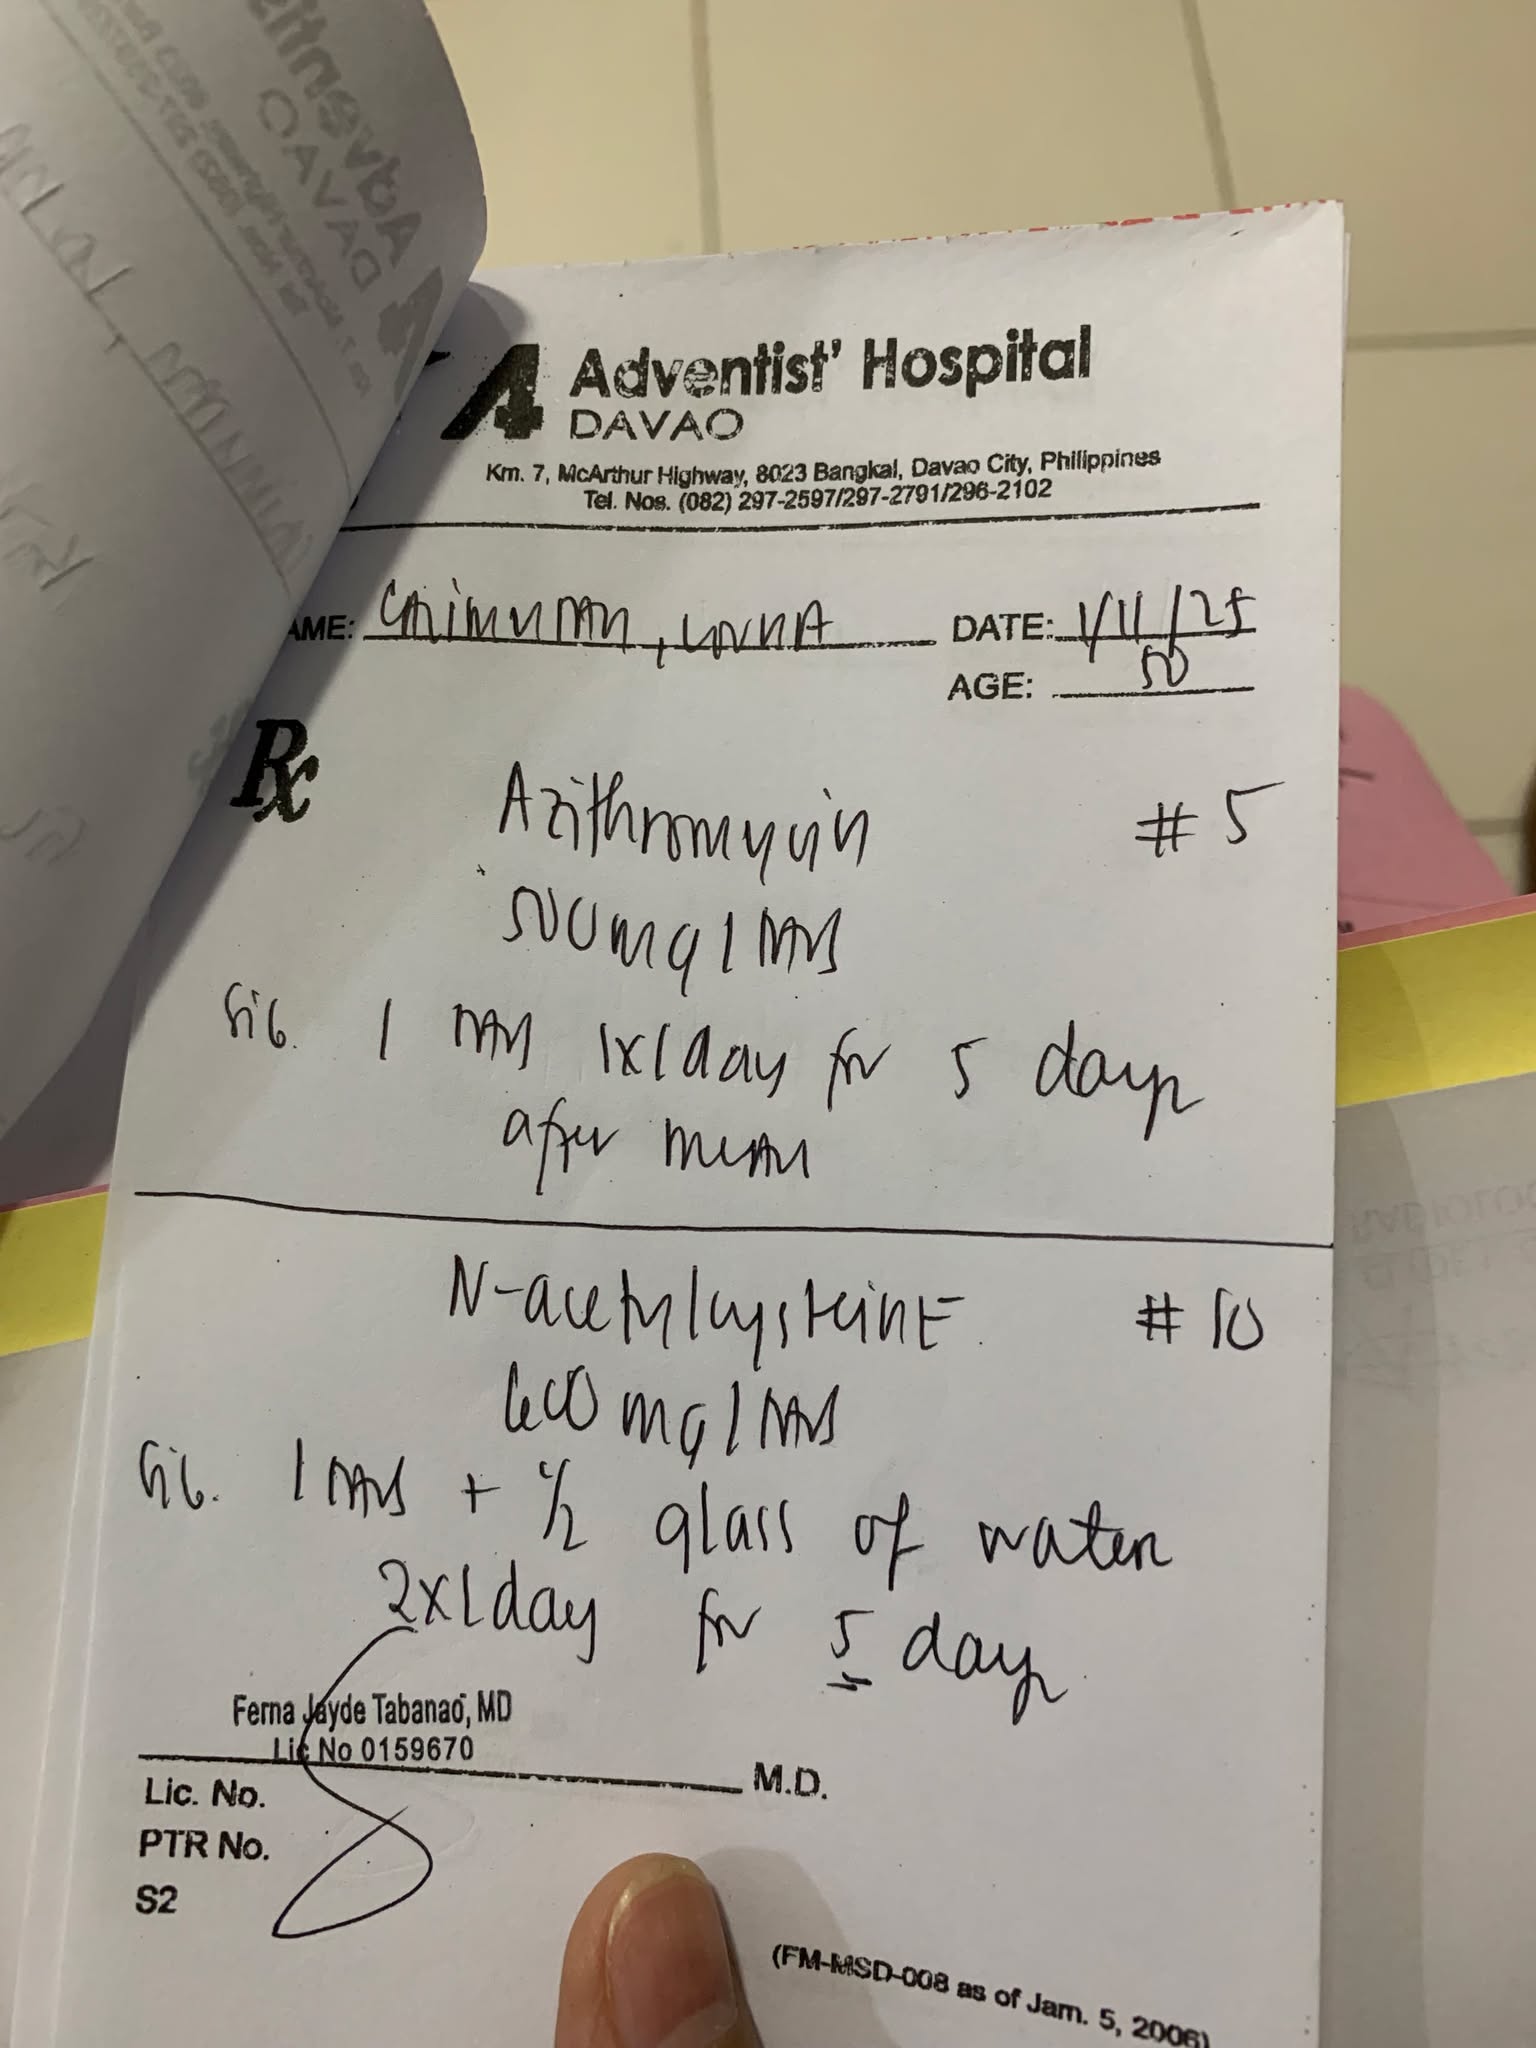 Adventist' Hospital
DAVAO
Km. 7, McArthur Highway, 8023 Bangkal, Davao City, Philippines
Tel. Nos. (082) 297-2597/297-2791/296-2102
AME: DATE: 1/11/25
AGE: 50
Rx
Azithromycin #5
500mg/tab
Sig. 1 tab 1x/day for 5 days
after meal
N-acetylcysteine #10
600mg/tab
Sig. 1 tab + 1/2 glass of water
2x/day for 5 days
Ferna Jayde Tabanao, MD
Lic No 0159670
M.D.
Lic. No.
PTR No.
S2
(FM-MSD-008 as of Jam. 5, 2006)